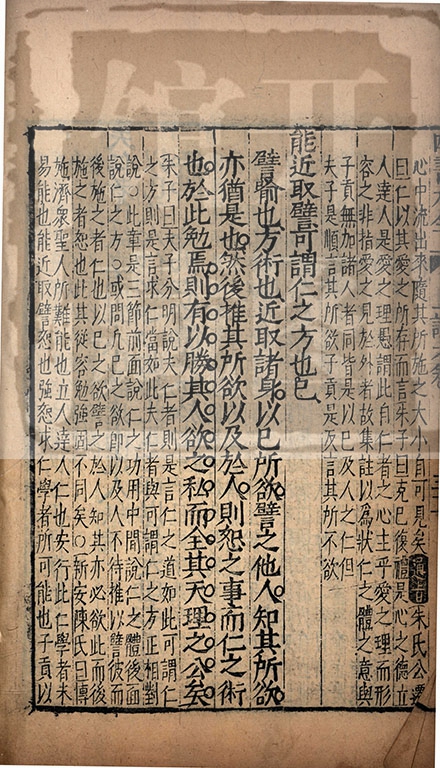 心中流出來隨其所施之大小自可見矣 朱氏公遷
曰仁以其愛之所存而言朱子曰克已復禮是心之德立
人達人是愛之理愚謂此自仁者之心主乎愛之理而形
容之非指愛之見於外者故集註以為狀仁之體之意與
子貢無加諸人者同皆是以已及人之仁但
夫子是順言其所欲子貢是反言其所不欲
能近取譬可謂仁之方也已
譬喻也方術也近取諸身以已所欲譬之他人知其所欲
亦猶是也然後推其所欲以及於人則恕之事而仁之術
也於此勉焉則有以勝其人欲之私而全其天理之公矣
朱子曰夫子分明說夫仁者則是言仁之道如此可謂仁
之方則是言求仁當如此夫仁者與可謂仁之方正相對
說○此章是三節前面說仁之功用中間說仁之體後面
說仁之方○或問凡已之欲即以及人不待推以譬彼而
後施之者仁也以已之欲譬之於人知其亦必欲此而後
施之者恕也此其從容勉強固不同矣○新安陳氏曰博
施濟衆聖人所難能也立人達人仁也安行此仁學者未
易能也能近取譬恕也強恕求仁學者所可能也子貢以